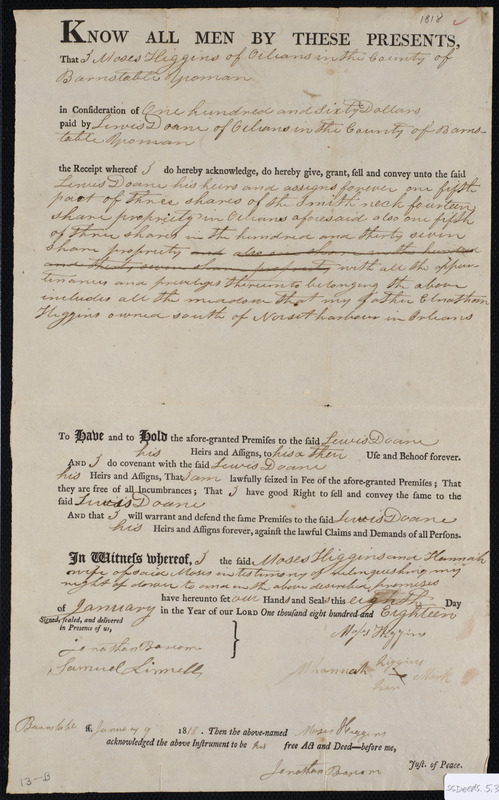 1818
KNOW ALL MEN BY THESE PRESENTS,
That I Moses Higgins of Orleans in the County of
Barnstable Yeoman
in Consideration of One hundred and Sixty Dollars
paid by Lewis Doane of Orleans in the County of Barns-
table Yeoman
the Receipt whereof I do hereby acknowledge, do hereby give, grant, sell and convey unto the said
Lewis Doane his heirs and assigns forever one fifth
part of three shares of the Smith neck fourteen
share propriety in Orleans aforesaid also one fifth
of three shares in the hundred and thirty seven
share propriety and also one share in the hundred
and thirty seven share propriety with all the appur
tenances and privileges thereunto belonging the above
includes all the meadow that my father Elnathan
Higgins owned south of Norset harbour in Orleans
To Have and to Hold the afore-granted Premises to the said Lewis Doane
his Heirs and Assigns, to his & their Use and Behoof forever.
AND I do covenant with the said Lewis Doane
his Heirs and Assigns, That I am lawfully seized in Fee of the afore-granted Premises; That
they are free of all Incumbrances; That I have good Right to sell and convey the same to the
said Lewis Doane
AND that I will warrant and defend the same Premises to the said Lewis Doane
his Heirs and Assigns forever, against the lawful Claims and Demands of all Persons.
In Witness whereof, I the said Moses Higgins and Hannah
wife of said Moses in testimony of relinquishing my
right of dower to and in the above described premises
have hereunto set our Hands and Seals this eighth Day
of January in the Year of our LORD One thousand eight hundred and Eighteen
Signed, sealed, and delivered
in Presence of us,
Moses Higgins
Jonathan Bascom
Samuel Linnell
Hannah Higgins
her X Mark
Barnstable ss. January 9 1818. Then the above-named Moses Higgins
acknowledged the above Instrument to be his free Act and Deed—before me,
Just. of Peace.
Jonathan Bascom
13-B
SSDEEDS.5.3